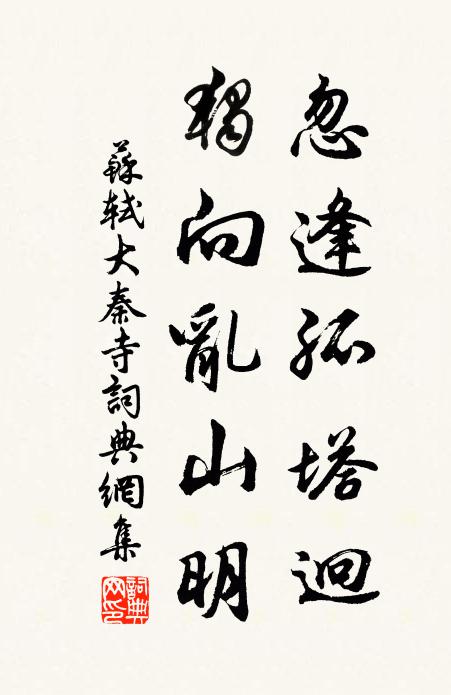 忽逢孤塔迥
獨向亂山明
蘇軾大秦寺詞典網集
詞典網印